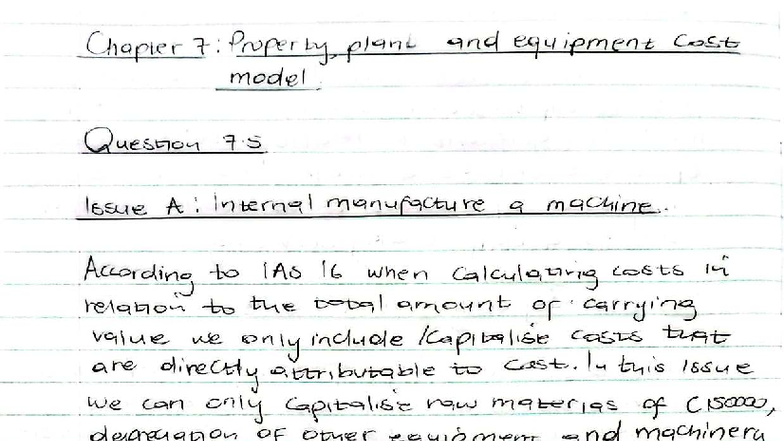 Chapter 7: Property, plant and equipment cost
model.
Question 7.5
Issue A: Internal manufacture a machine.
According to IAS 16 when calculating costs in
relation to the total amount of carrying
value we only include /capitalise costs that
are directly attributable to cost. In this issue
we can only capitalise raw materias of C150000,
of other equipment and machinery